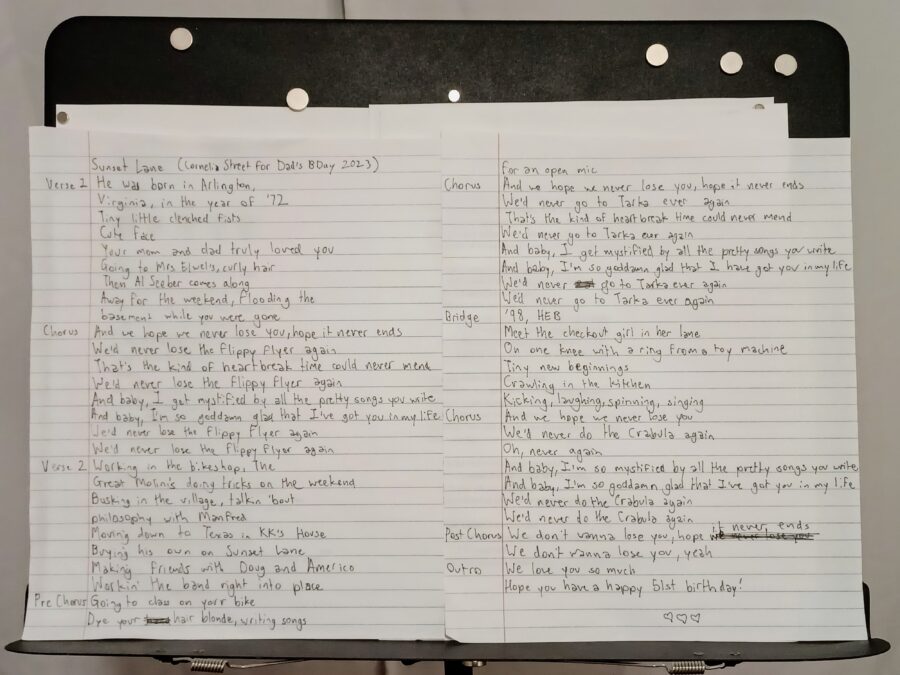 Sunset Lane (Cornelia Street for Dad's BDay 2023)
Verse 1 He was born in Arlington,
Virginia, in the year of '72
Tiny little clenched fists
Cute face
Your mom and dad truly loved you
Going to Mrs Elwel's, curly hair
Then Al Seeber comes along
Away for the weekend, flooding the
basement while you were gone
Chorus And we hope we never lose you, hope it never ends
We'd never lose the flippy flyer again
That's the kind of heartbreak time could never mend
We'd never lose the flippy flyer again
And baby, I get mystified by all the pretty songs you write
And baby, I'm so goddamn glad that I've got you in my life
We'd never lose the flippy flyer again
We'd never lose the flippy flyer again
Verse 2 Working in the bikeshop, the
Great Molini's doing tricks on the weekend
Busking in the village, talkin 'bout
philosophy with Manfred
Moving down to Texas in KK's House
Buying his own on Sunset Lane
Making friends with Doug and Americo
Workin' the band right into place
Pre Chorus Going to class on your bike
Dye your hair blonde, writing songs
For an open mic
Chorus And we hope we never lose you, hope it never ends
We'd never go to Tarka ever again
That's the kind of heartbreak time could never mend
We'd never go to Tarka ever again
And baby, I get mystified by all the pretty songs you write
And baby, I'm so goddamn glad that I have got you in my life
We'd never go to Tarka ever again
We'd never go to Tarka ever again
Bridge '98, HEB
Meet the checkout girl in her lane
On one knee with a ring from a toy machine
Tiny new beginnings
Crawling in the kitchen
Kicking, laughing, spinning, singing
Chorus And we hope we never lose you
We'd never do the Crabula again
Oh, never again
And baby, I'm so mystified by all the pretty songs you write
And baby, I'm so goddamn glad that I've got you in my life
We'd never do the Crabula again
We'd never do the Crabula again
Post Chorus We don't wanna lose you, hope it never ends
We don't wanna lose you, yeah
Outro We love you so much
Hope you have a happy 51st birthday!